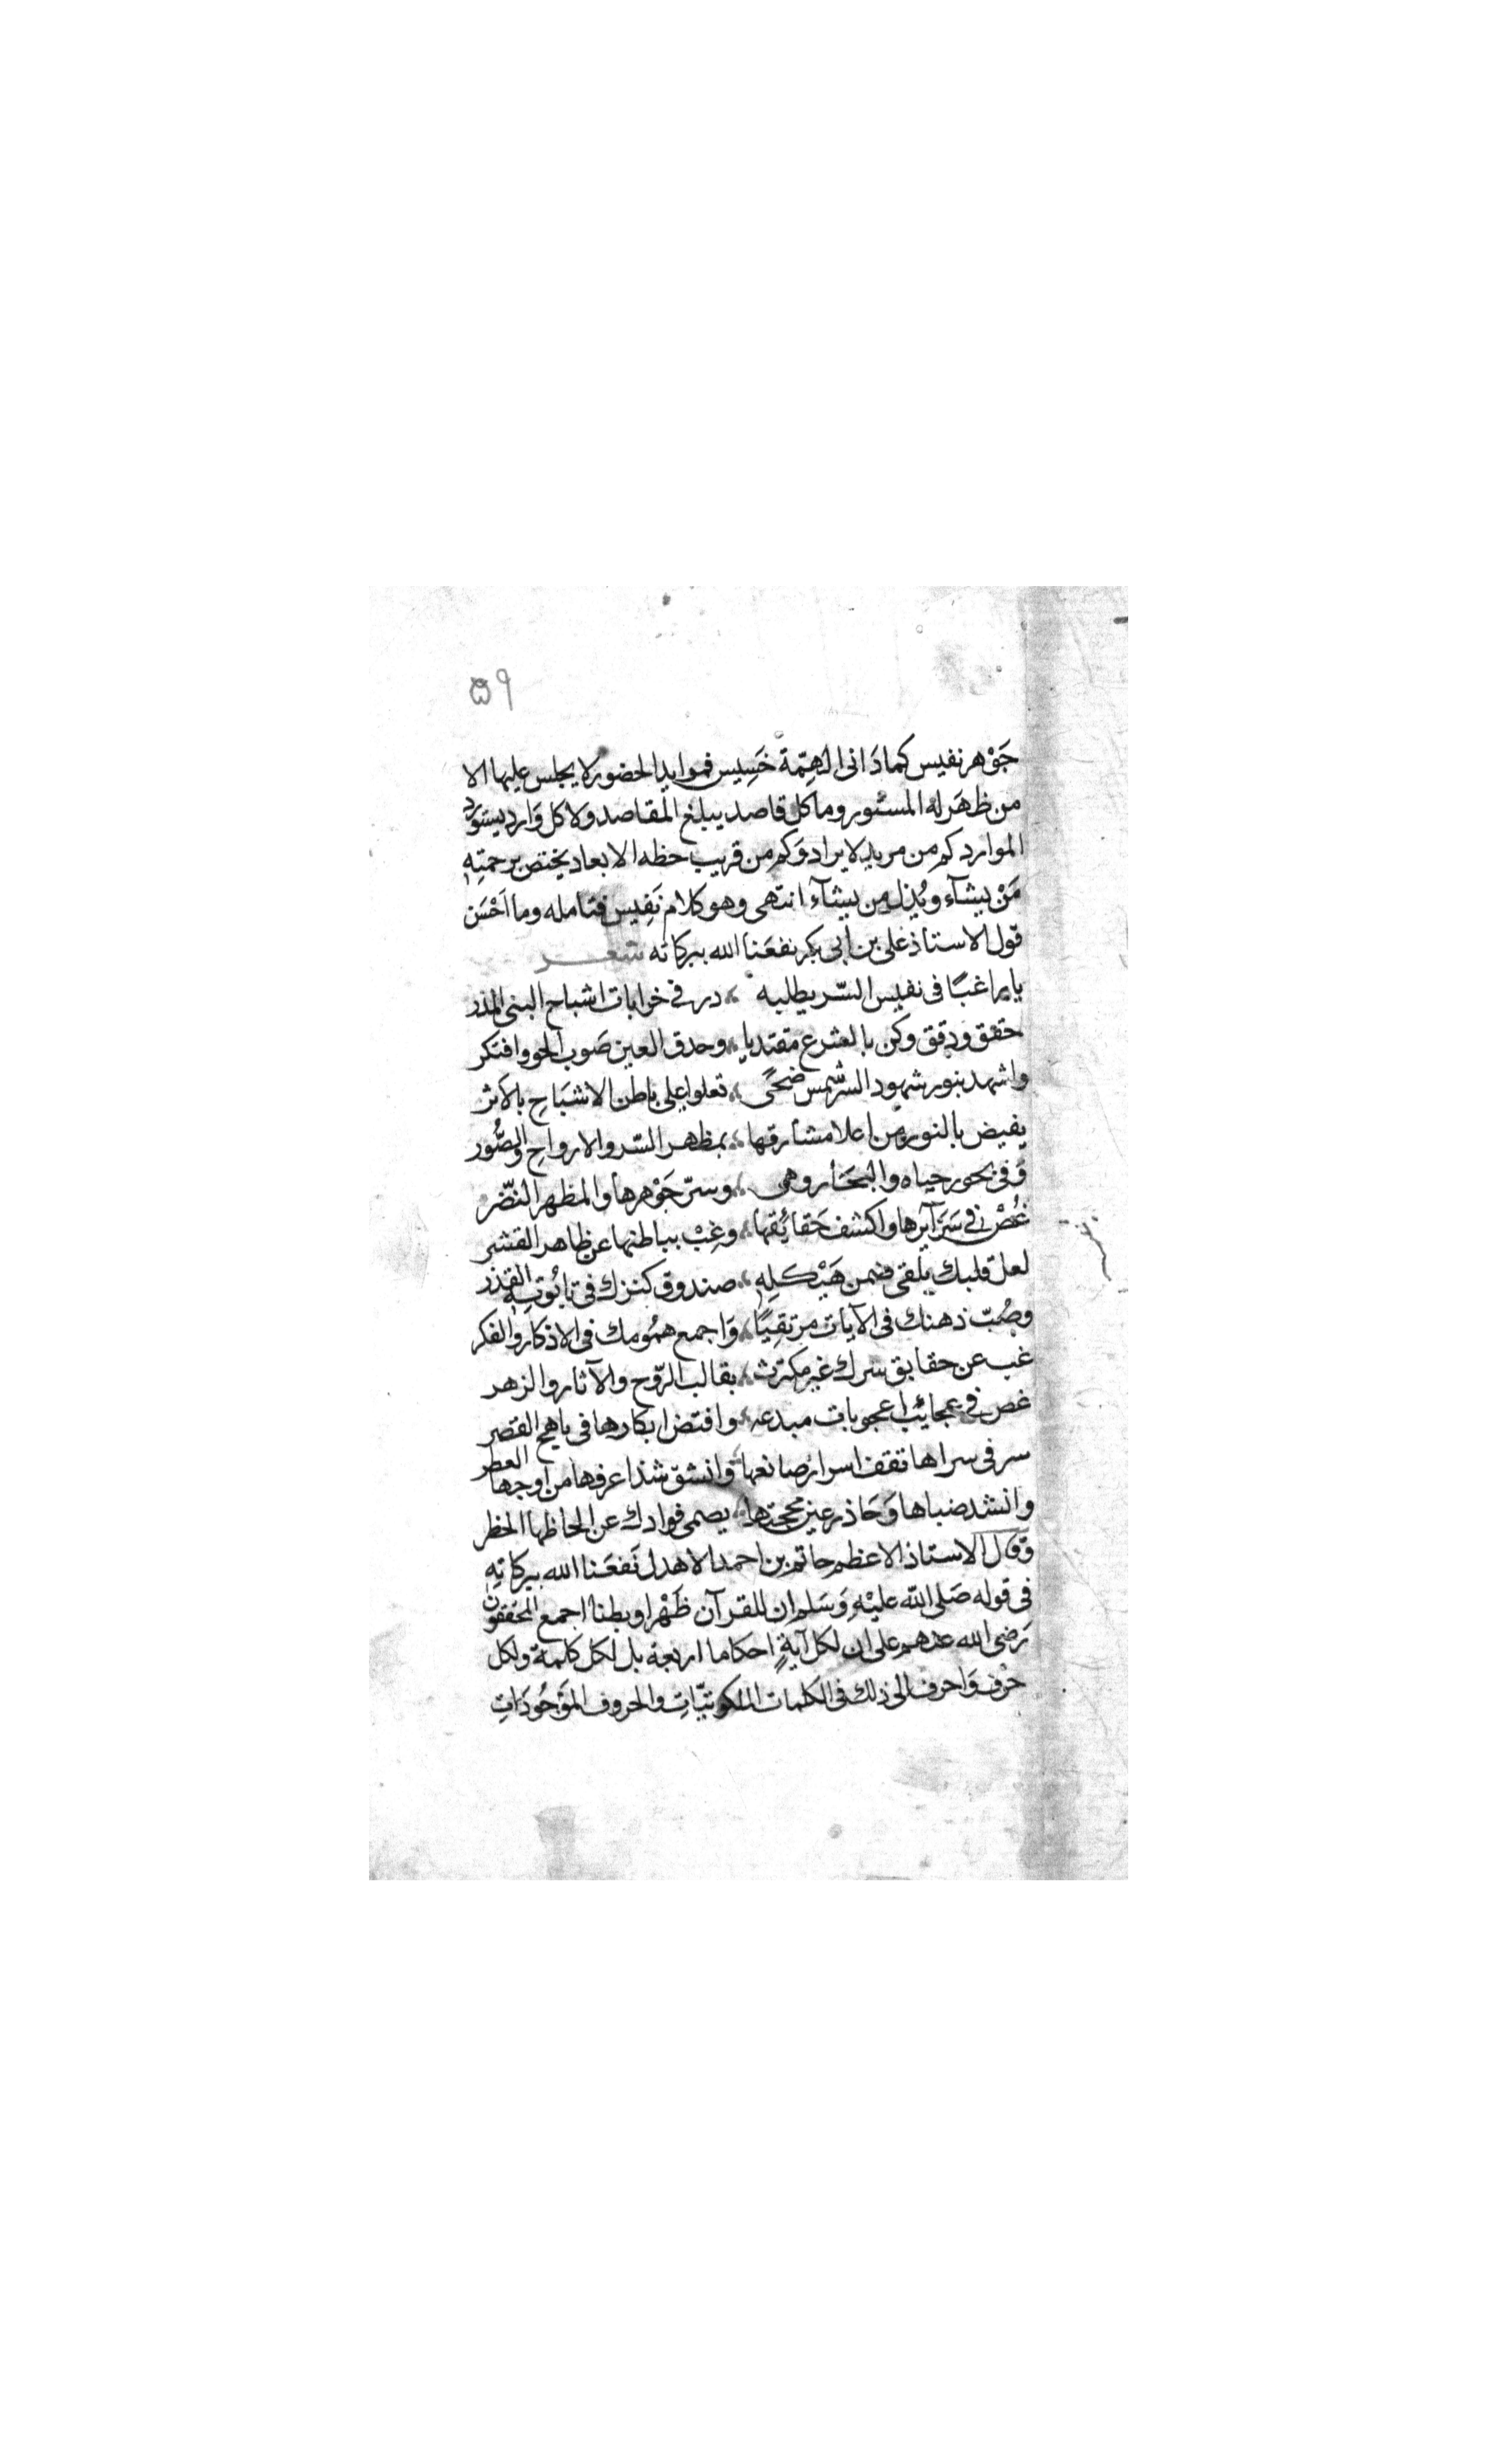 ٥٩
جَوْهر نفيس كما دَانى الهِمّة خَسِيس فموايد الحضور لا يجلس عليها الا
من ظهَر له المستور وما كل قاصد يبلغ المقاصد ولا كل وَارد يستورد
الموارد كم من مريد لا يراد وَكم من قريب حظه الابعاد يختص برحمتِهِ
مَنْ يشآء ويُذل من يشآء انتهى وهو كلام نَفِيس فتامله وما اَحْسَن
قول الاستاذ على بن ابى بكر نفعَنا الله ببركاته شعر
يا راغبًا فى نفيس السّر يطلبه در فى خرابات اشباح البنى المدر
حقق ودقق وكن بالشرع مقتديا وحدق العين صَوب الحو وافتكر
واشهد بنور شهود السر شمس ضحًى تعلوا على باطن الاشبَاحِ بالاَثر
يفيض بالنور من اعلا مشارقها بمظهر السّر والارواحِ والصُّور
وَفى بحور حياه والبحَار وهى وسرّ جَوْهرها والمظهر النضّر
غُصْ فى سَرَآيرها واكشف حَقائقها وغِبْ بباطنها عن ظاهر القشر
لعل قلبك يلقى ضمن هَيْكلِهِ صندوق كنزك فى تابُوتِهِ القذر
وصُبّ ذهنك فى الآيات مرتقِيًا وَاجمع همُومك فى الاذكار والفكر
غب عن حقايق سرك غير مكترث بقالب الرّوح والآثار والزهر
غص فى عجائب اعجوبات مبدعه وافتض ابكارها فى باهج القصر
سر فى سراها تقف اسرار صانعها وانشق شذا عرفها من اوجها العطر
وانشد ضباها وَحَاذر عين محجتها يصمى فوادك عن الحاظها الخطر
وَقال الاستاذ الاعظم حاتم بن احمد الاهدل نَفعَنا الله ببركاتِهِ
فى قوله صَلى الله عليْهِ وَسَلم ان للقرآن ظَهْرا وبطنا اجمع المحققون
رَضى الله عنهم على ان لكل آيةٍ احكاما اربعة بل لكل كلمة ولكل
حرف وَاحرف الى ذلك فى الكلمات الملكوتيّاتِ والحروف الموَجُودَاتِ